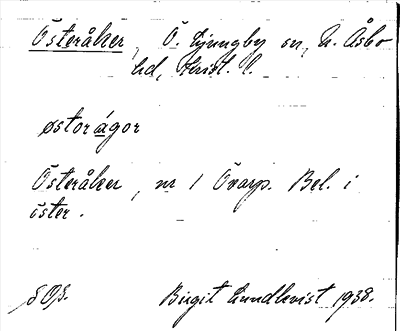 Österåker, Ö. Ljungby sn, N. Åsbo
hd, Krist. l.
østorágor
Österåker, nr 1 Övarp. Bel. i
öster.
Birgit Lundkvist 1938.